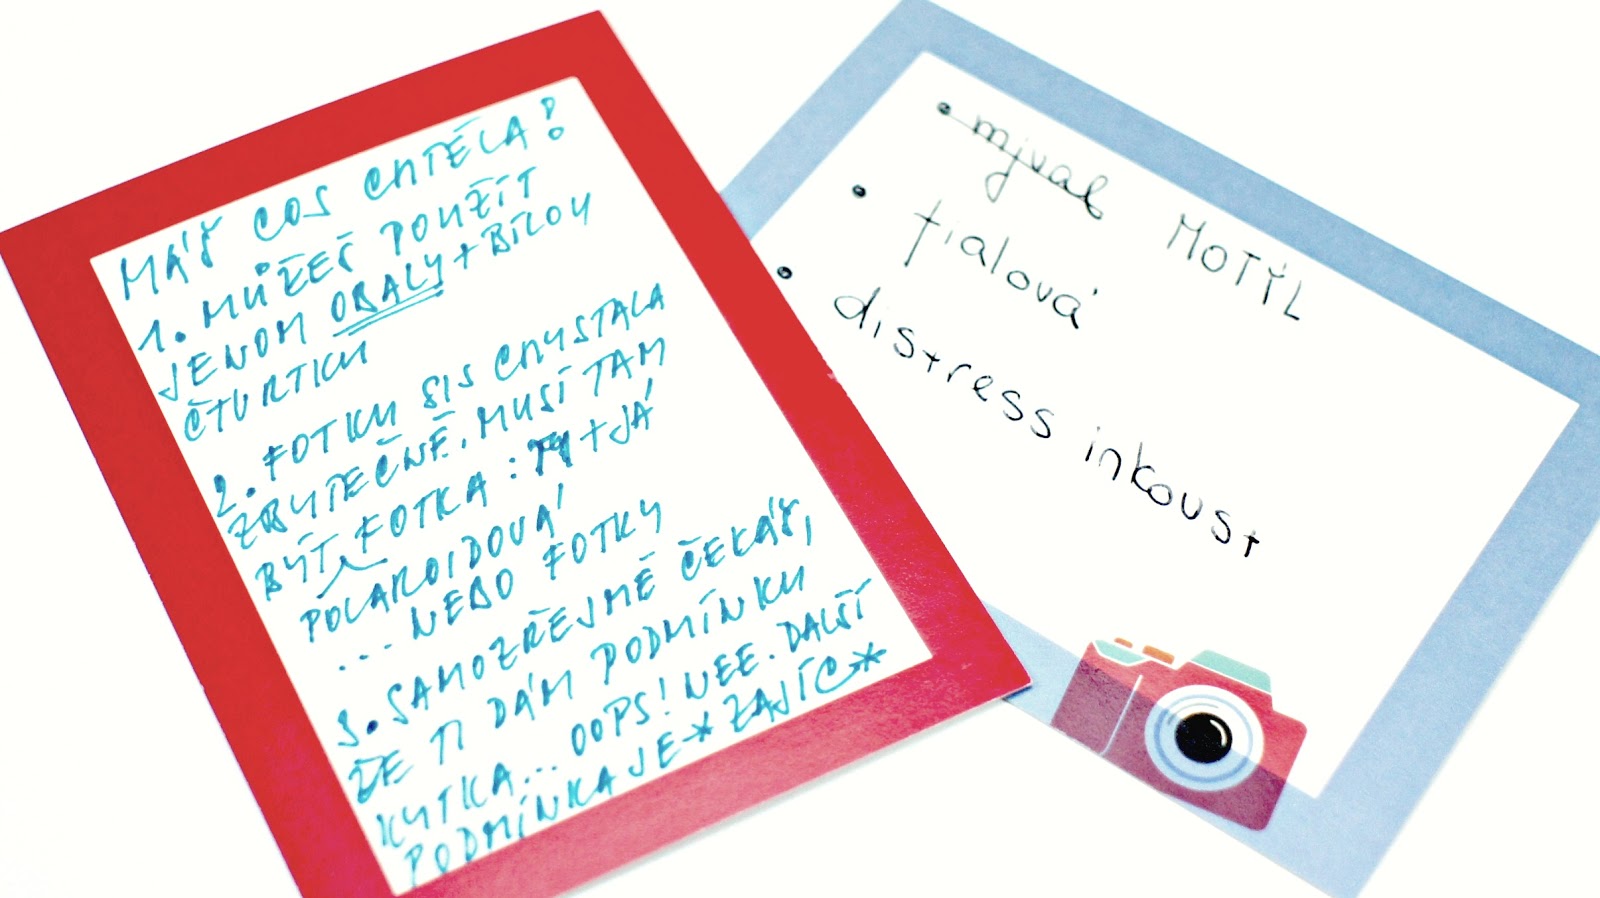 MÁŠ COS CHTĚLA!
1. MŮŽEŠ POUŽÍT
JENOM OBALY + BÍLOU
ČTVRTKU
2. FOTKY SIS CHYSTALA
ZBYTEČNĚ. MUSÍ TAM
BÝT FOTKA: TY + JÁ
POLAROIDOVÁ!
... NEBO FOTKY
3. SAMOZŘEJMĚ ČEKÁŠ,
ŽE TI DÁM PODMÍNKU
KYTKA... OOPS! NEE. DALŠÍ
PODMÍNKA JE *ZAJÍC*
• mjval MOTÝL
• fialová
• distress inkoust